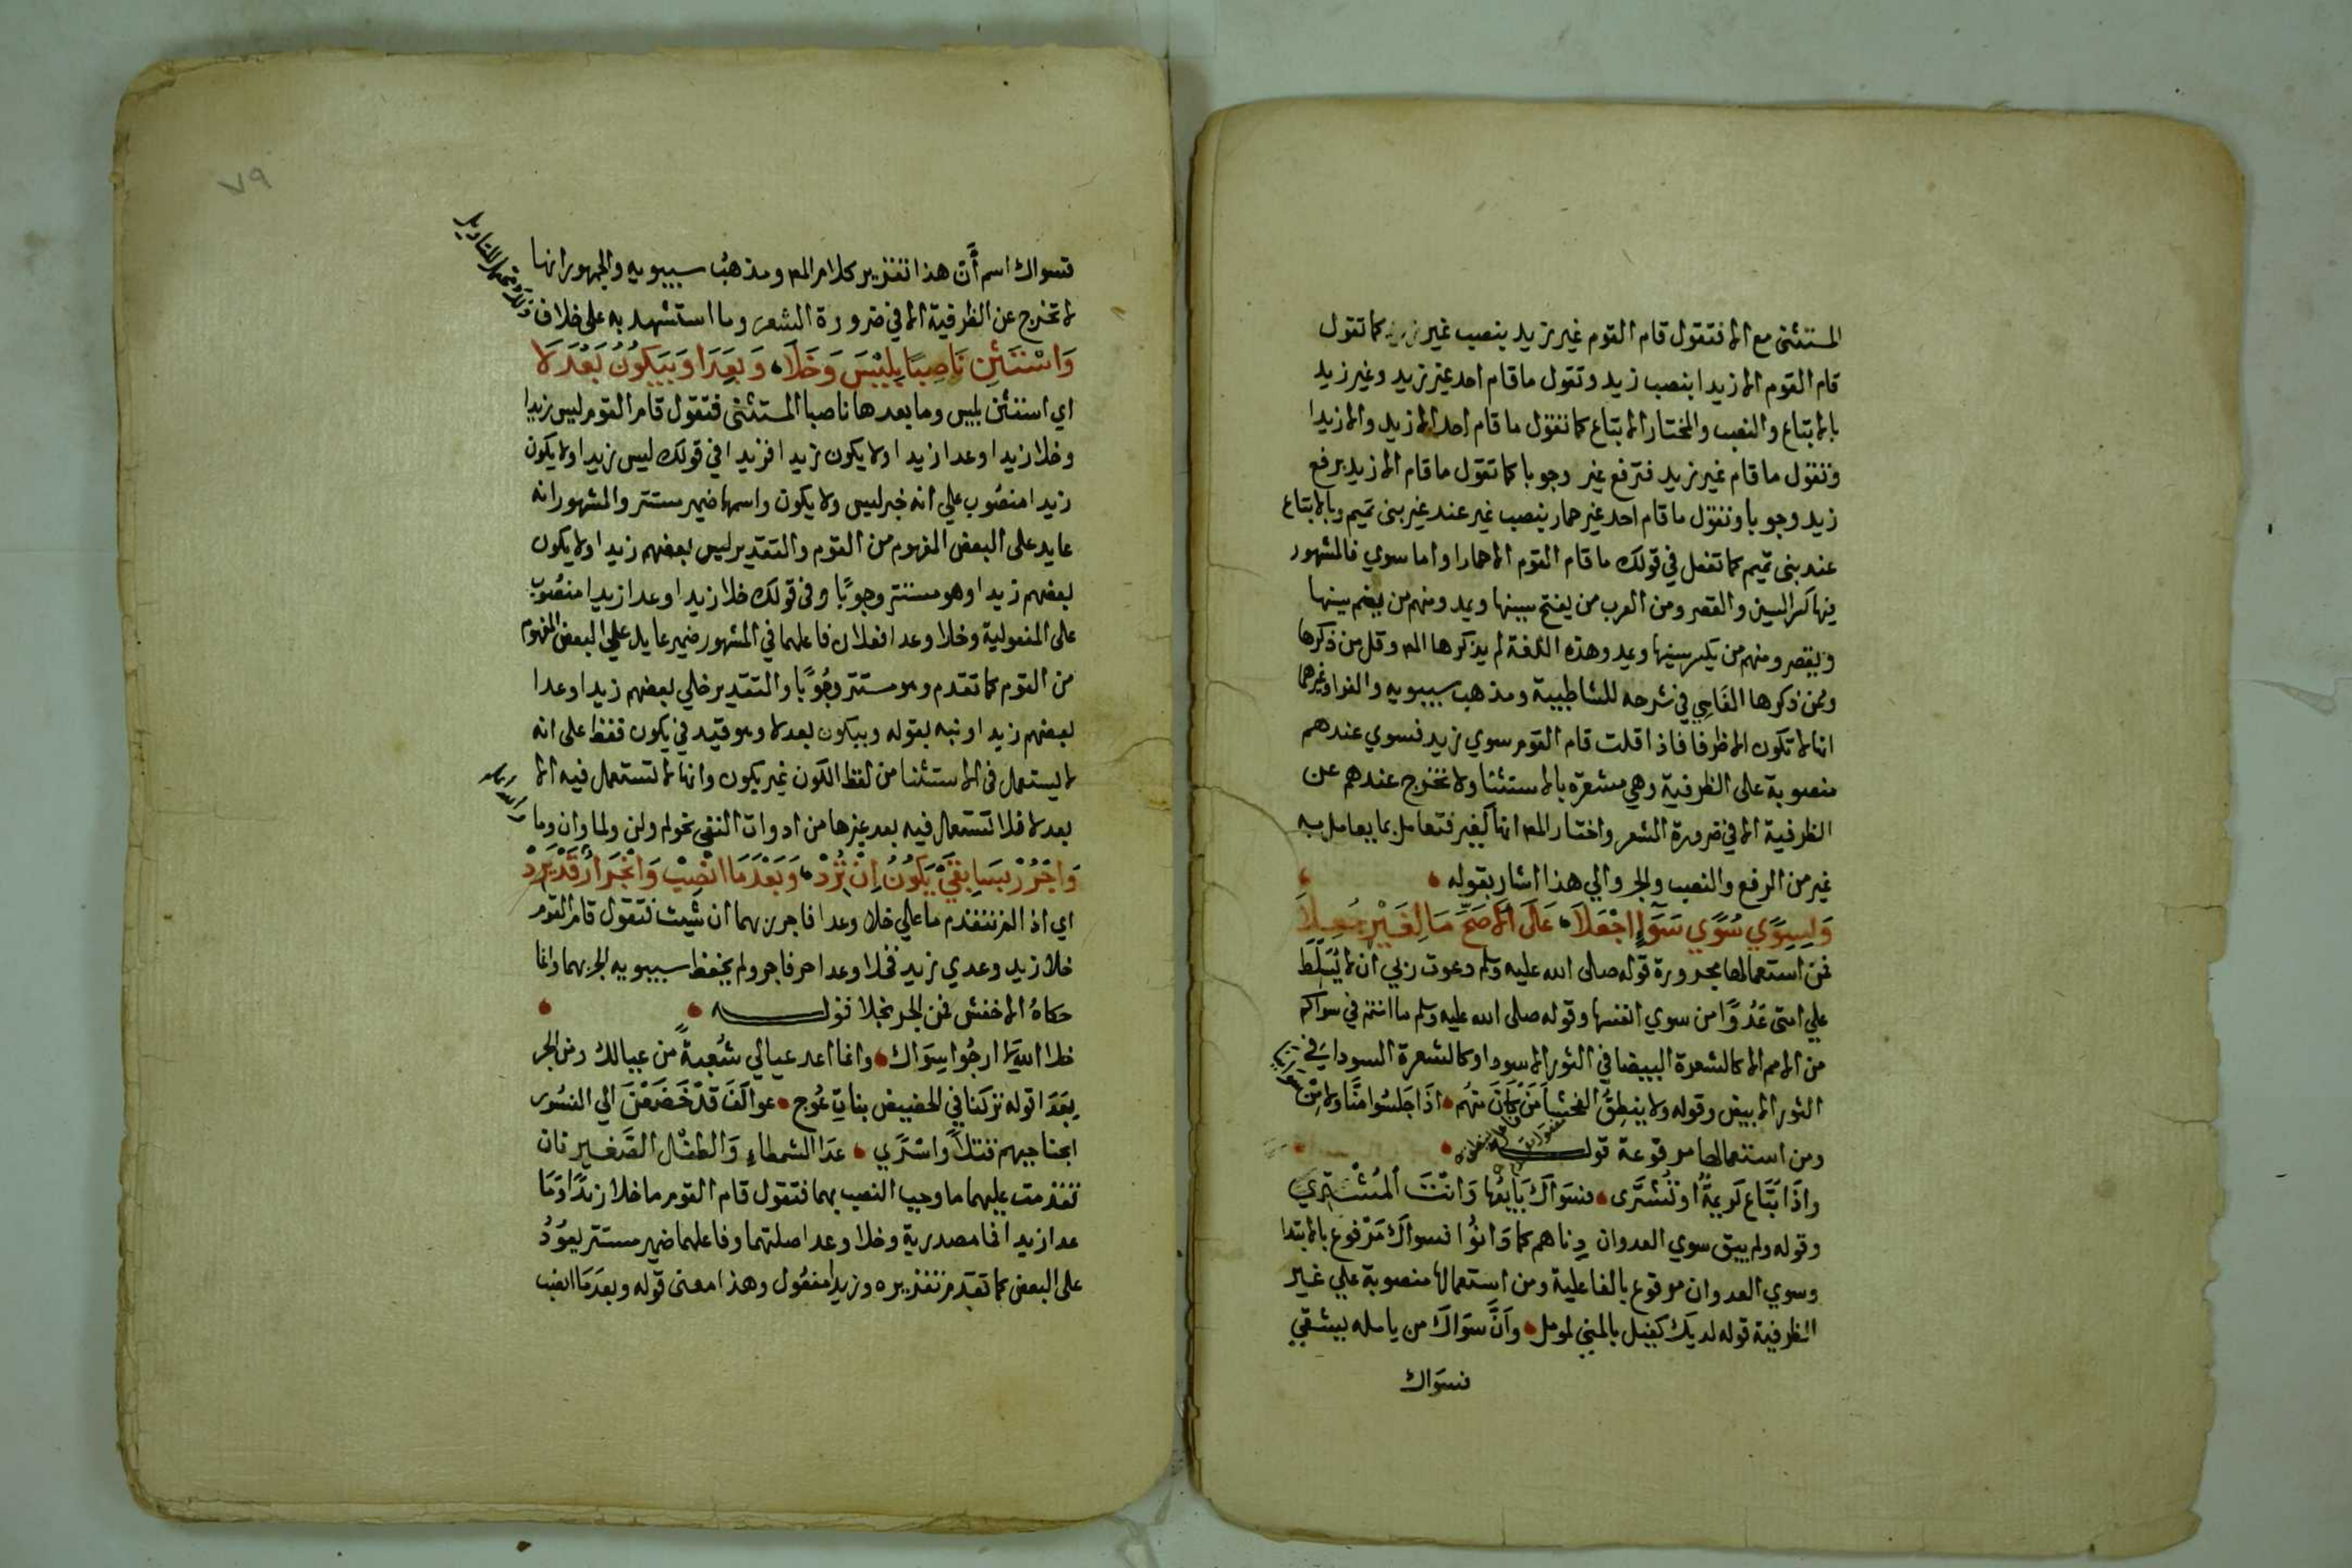 المستثنى مع الا فتقول قام القوم غير زيد بنصب غير كما تقول
قام القوم الا زيدا بنصب زيد وتقول ما قام احد غير زيد وغير زيد
بالاتباع والنصب والمختار الاتباع كما تقول ما قام احد الا زيد والا زيدا
وتقول ما قام غير زيد فترفع غير وجوبا كما تقول ما قام الا زيد برفع
زيد وجوبا وتقول ما قام احد غير حمار بنصب غير عند غير بنى تميم وبالاتباع
عند بنى تميم كما تفعل في قولك ما قام القوم الا حمارا واما سوي فالمشهور
فيها كسر السين والقصر ومن العرب من يفتح سينها ويمد ومنهم من يضم سينها
ويقصر ومنهم من يكسر سينها ويمد وهذه اللغة لم يذكرها المص وقل من ذكرها
وممن ذكرها الفاسي في شرحه للشاطبية ومذهب سيبويه والفرا وغيرهما
انها لا تكون الا ظرفا فاذا قلت قام القوم سوي زيد فسوي عندهم
منصوبة على الظرفية وهي مشعرة بالاستثنا ولا تخرج عندهم عن
الظرفية الا في ضرورة الشعر واختار المص انها كغير فتعامل بما يعامل به
غير من الرفع والنصب والجر والي هذا اشار بقوله
وَلِسِوًي سُوًي سَوَآءٍ اجْعَلَا عَلَى الاَصَحِّ مَا لِغَيْرٍ جُعِلَا
فمن استعمالها مجرورة قوله صلى الله عليه وسلم دعوت ربي ان لا يُسَلِّطَ
علي امتى عَدُوًّا من سوي انفسها وقوله صلى الله عليه وسلم ما انتم في سواكم
من الامم الا كالشعرة البيضا في الثور الاسود او كالشعرة السودا في
الثور الابيض وقوله ولا ينطِقُ الفحشا مَنْ كَانَ مِنهُم اذَا جَلَسُوا مِنَّا ولا مِن
ومن استعمالها مرفوعة قوله
واذَا تُبَاع كَرِيمَةٌ اوتُشْتَرى فسَوَاكَ بَايِعُها وَانْتَ المُشْتَرِي
وقوله ولم يبق سوي العدوان دِناهم كما دَانُوا فسواكَ مَرْفوع بالابتدا
وسوي العدوان مرفوع بالفاعلية ومن استعمالها منصوبة علي غير
الظرفية قوله لديكَ كفيل بالمني لمومل وانَّ سوَاكَ من يامله يشقي
فسوَاك
٧٩
فسواك اسم أن هذا تقرير كلام المص ومذهب سيبويه والجمهور انها
لا تخرج عن الظرفية الا في ضرورة الشعر وما استشهد به على خلاف
وَاسْتَثْنِ نَاصِبًا بِلَيْسَ وَخَلَا وَبِعَدَا وَبِيَكُونُ بَعْدَ لَا
اي استثن بليس وما بعدها ناصبا المستثنى فتقول قام القوم ليس زيدا
وخلا زيدا وعدا زيدا ولا يكون زيدا فزيدا في قولك ليس زيدا ولا يكون
زيدا منصوب علي انه خبر ليس ولا يكون واسمها ضمير مستتر والمشهور انه
عايد على البعض المفهوم من القوم والتقدير ليس بعضهم زيدا ولا يكون
بعضهم زيدا وهو مستتر وجوبًا وفى قولك خلا زيدا وعدا زيدا منصوب
على المفعولية وخلا وعدا فعلان فاعلهما في المشهور ضمير عايد علي البعض المفهوم
من القوم كما تقدم وهو مستتر وجُوبًا والتقدير خلي بعضهم زيدا وعدا
بعضهم زيدا ونبه بقوله وبيكون بعد لا وهو قيد في يكون فقط على انه
لا يستعمل فى الاستثنا من لفظ الكون غير يكون وانها لا تستعمل فيه الا
بعد لا فلا تستعمل فيه بعد غيرها من ادوات النفي نحو لم ولن ولما وان وما
وَاجْرُرْ بِسَابِقَيْ يَكُونُ اِنْ تُرِدْ وَبَعْدَ مَا انْصِبْ وَانْجِرَارٌ قَدْ يَرِدْ
اي اذا لم تتقدم ما علي خلا وعدا فاجرر بهما ان شيت فتقول قام القوم
خلا زيد وعدي زيد فخلا وعدا حرفا جر ولم يحفظ سيبويه الجر بهما وانما
حكاهُ الاخفش فمن الجر بخلا قوله
خلا اللهَ لا ارجُوا سِوَاك وانما اعد عيالي شُعبةً من عيالك ومن الجر
بِعَدَا قوله تركنا في الحضيض بناتِ عُوج عواكفَ قدْ خَضَعْنَ الي النسُور
ابحنا حيهم قتلاً وَاسْرًي عدَا الشمطاءِ وَالطفلِ الصَّغيرِ فان
تقدمت عليهما ما وجب النصب بهما فتقول قام القوم ما خلا زيدًا وَمَا
عدا زيدا فما مصدرية وخلا وعدا صلتهما وفاعلهما ضمير مستتر يعودُ
على البعض كما تقدم تقريره وزيدا مفعول وهذا معنى قوله وبعدَ مَا انصب